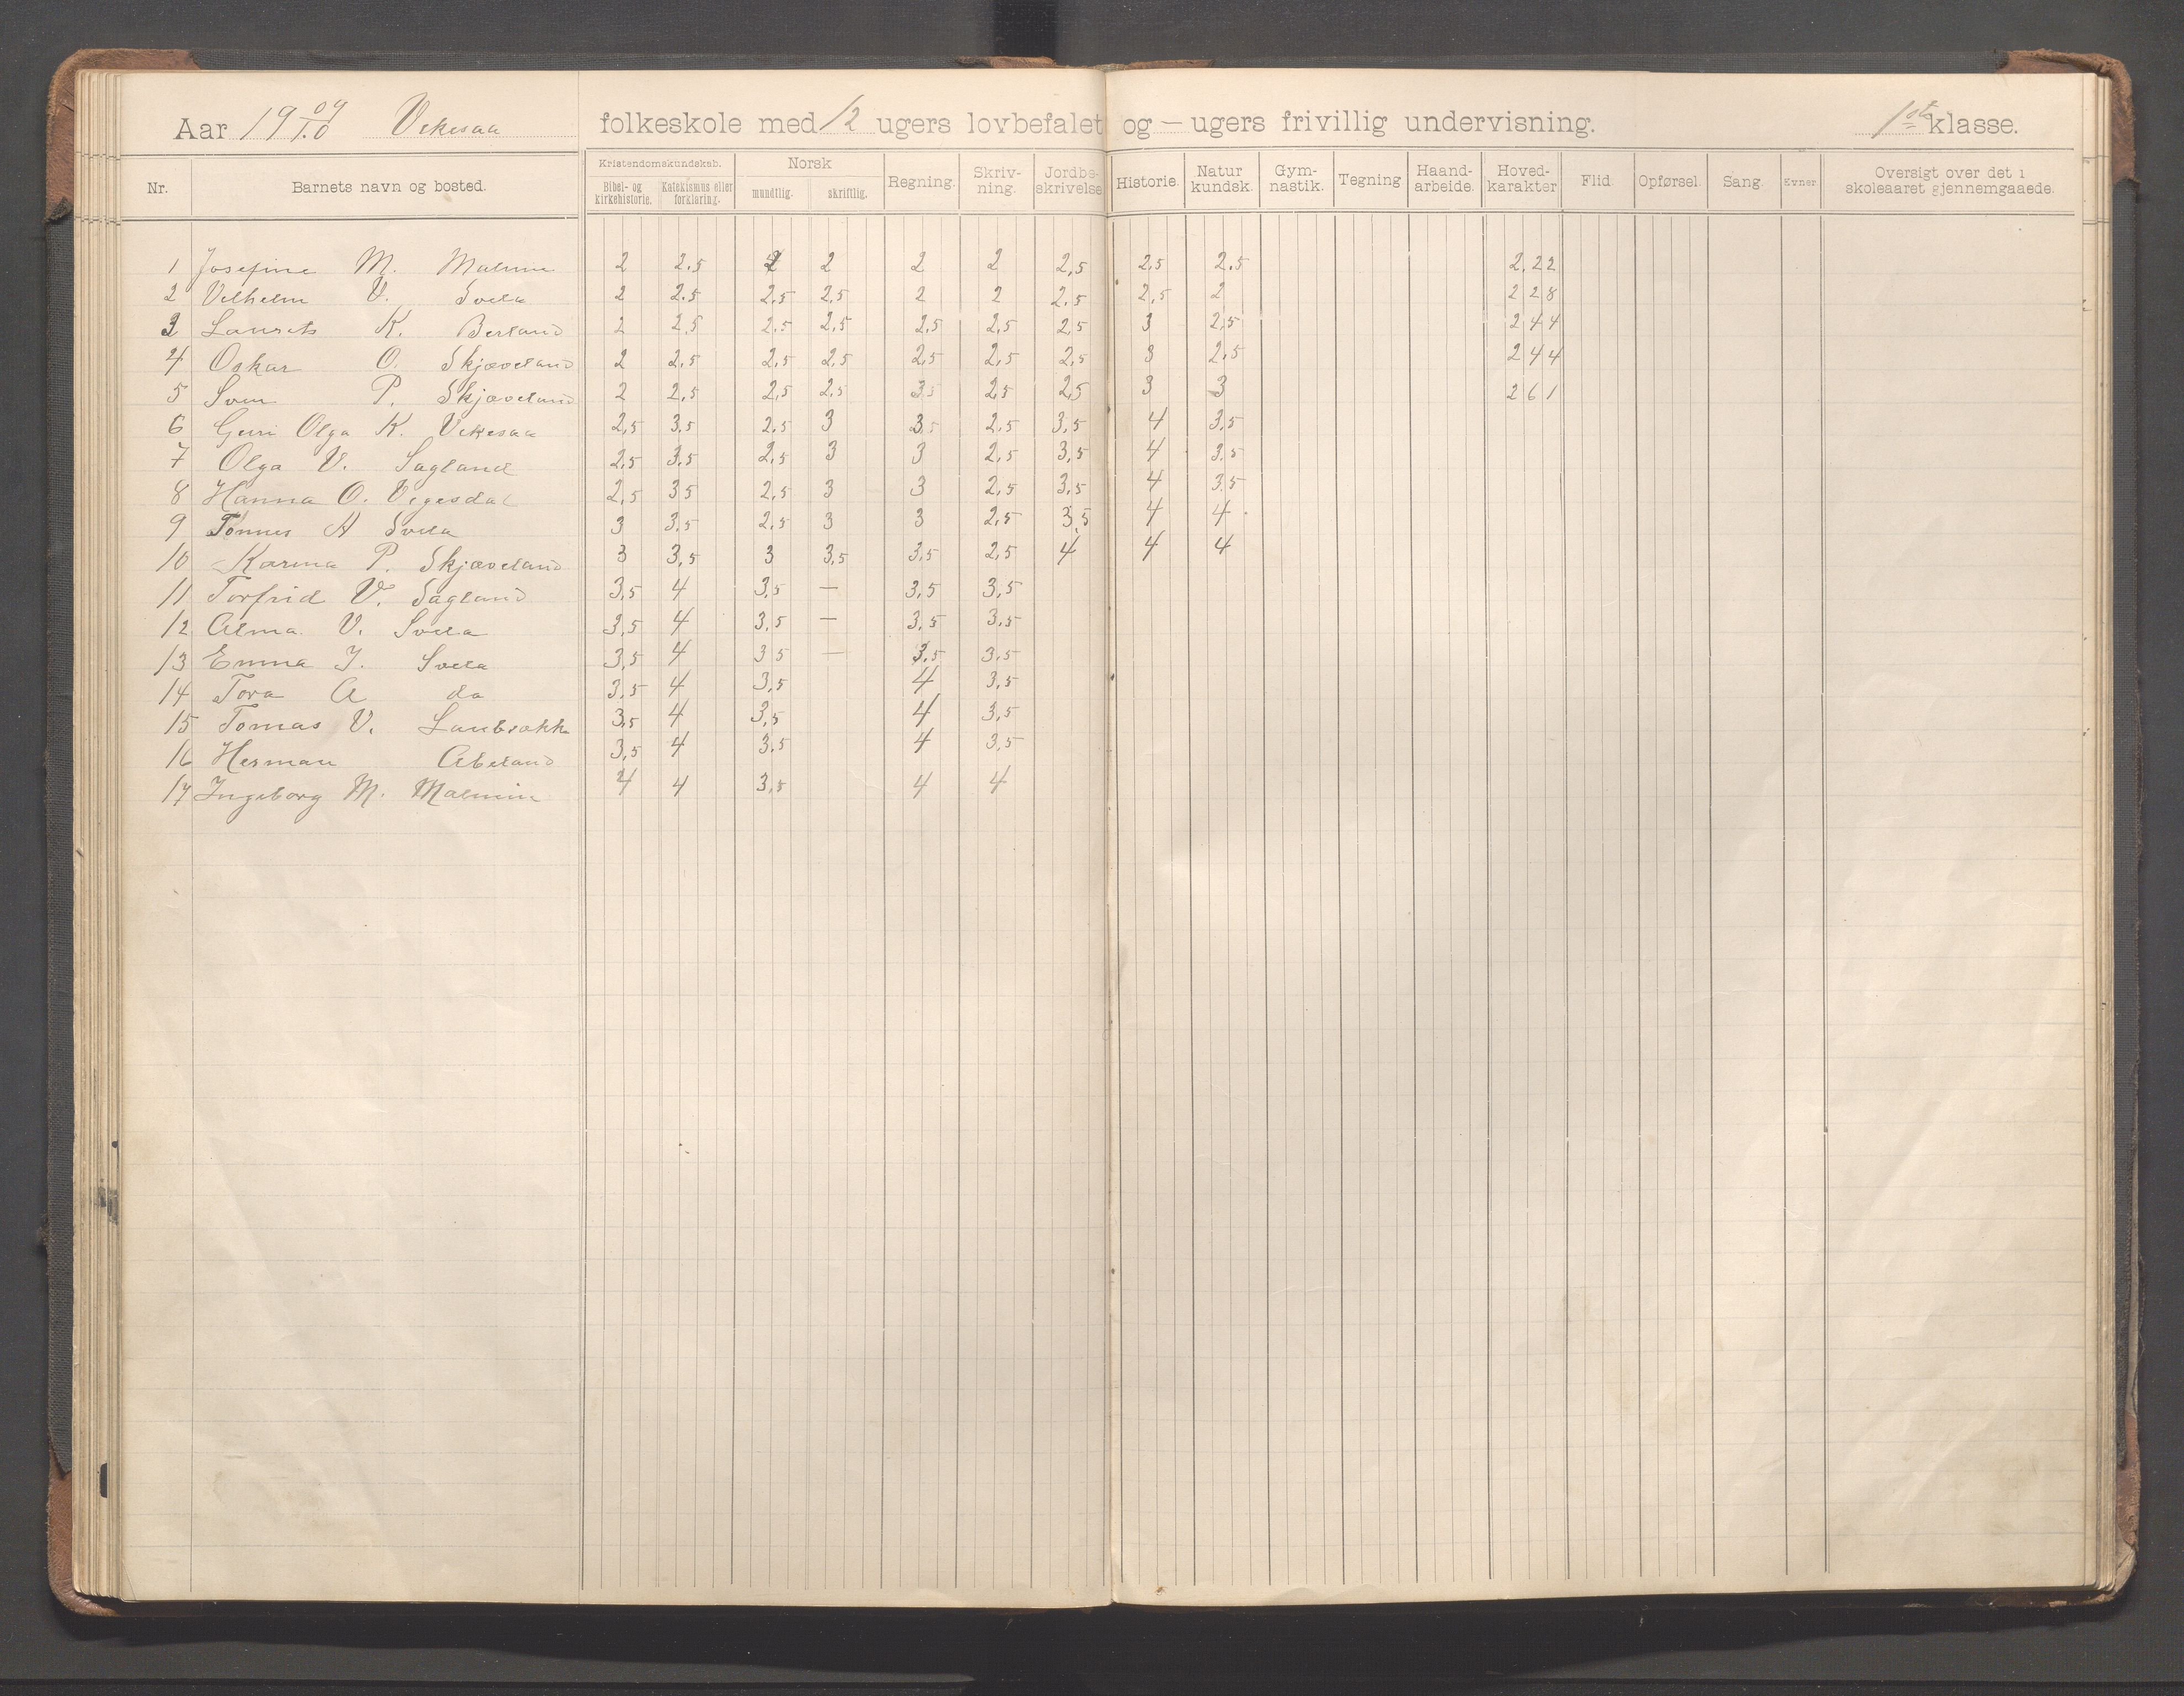 Aar 19 09/10 Vikesaa folkeskole med 12 ugers lovbefalet og — ugers frivillig undervisning. 1ste klasse.
Nr. Barnets navn og bosted. Kristendomskundskab. Bibel- og kirkehistorie. Katekismus eller forklaring. Norsk mundtlig. skriftlig. Regning. Skriv-ning. Jordbe-skrivelse Historie. Natur kundsk. Gym-nastik. Tegning Haand-arbeide. Hoved-karakter Flid. Opførsel. Sang. Evner. Oversigt over det i skoleaaret gjennemgaaede.
1 Josefine M. Malmin 2 2.5 2 2 2 2 2,5 2.5 2.5 2,22
2 Vilhelm V. Svela 2 2.5 2,5 2,5 2 2 2.5 2,5 2 2 28
3 Laurits K. Berland 2 2,5 2.5 2,5 2,5 2,5 2,5 3 2,5 2 44
4 Oskar O. Skjæveland 2 2,5 2,5 2,5 2,5 2,5 2,5 3 2,5 2 44
5 Sven P. Skjæveland 2 2,5 2,5 2,5 3.5 2,5 2,5 3 3 2 61
6 Guri Olga K. Vikesaa 2,5 3,5 2,5 3 3.5 2.5 3,5 4 3,5
7 Olga V. Sagland 2,5 3,5 2,5 3 3 2,5 3,5 4 3.5
8 Hanna O. Vegesdal 2,5 35 2,5 3 3 2,5 3,5 4 3.5
9 Tønnes A Svela 3 3.5 2.5 3 3 2,5 3,5 4 4
10 Karina P. Skjæveland 3 3,5 3 3,5 3,5 2,5 4 4 4
11 Torfrid V. Sagland 3,5 4 3,5 — 3,5 3,5
12 Alma V. Svela 3,5 4 3,5 — 3,5 3,5
13 Emma J. Svela 3,5 4 3 5 — 3,5 3,5
14 Tora A do 3,5 4 3,5 4 3,5
15 Tomas V. 3,5 4 3,5 4 3,5
16 Herman Abeland 3,5 4 3.5 4 3,5
17 Ingeborg M. Malmin 4 4 3,5 4 4